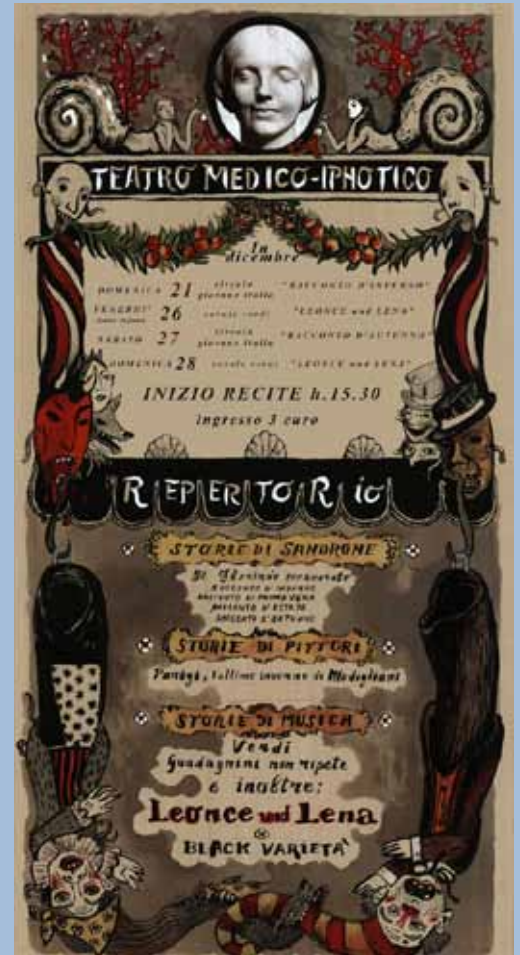 TEATRO MEDICO-IPNOTICO
In
dicembre
DOMENICA 21 circolo giovane italia "RACCONTO D'INVERNO"
VENERDI' 26 "LEONCE und LENA"
SABATO 27 circolo giovane italia "RACCONTO D'AUTUNNO"
DOMENICA 28 "LEONCE und LENA"
INIZIO RECITE h.15.30
ingresso 3 euro
REPERTORIO
STORIE DI SANDRONE
Il
RACCONTO D'INVERNO
RACCONTO DI PRIMAVERA
RACCONTO D'ESTATE
RACCONTO D'AUTUNNO
STORIE DI PITTORI
l'ultimo inverno di Modigliani
STORIE DI MUSICA
Verdi
Guadagnini non ripete
e inoltre:
Leonce und Lena
BLACK VARIETA'